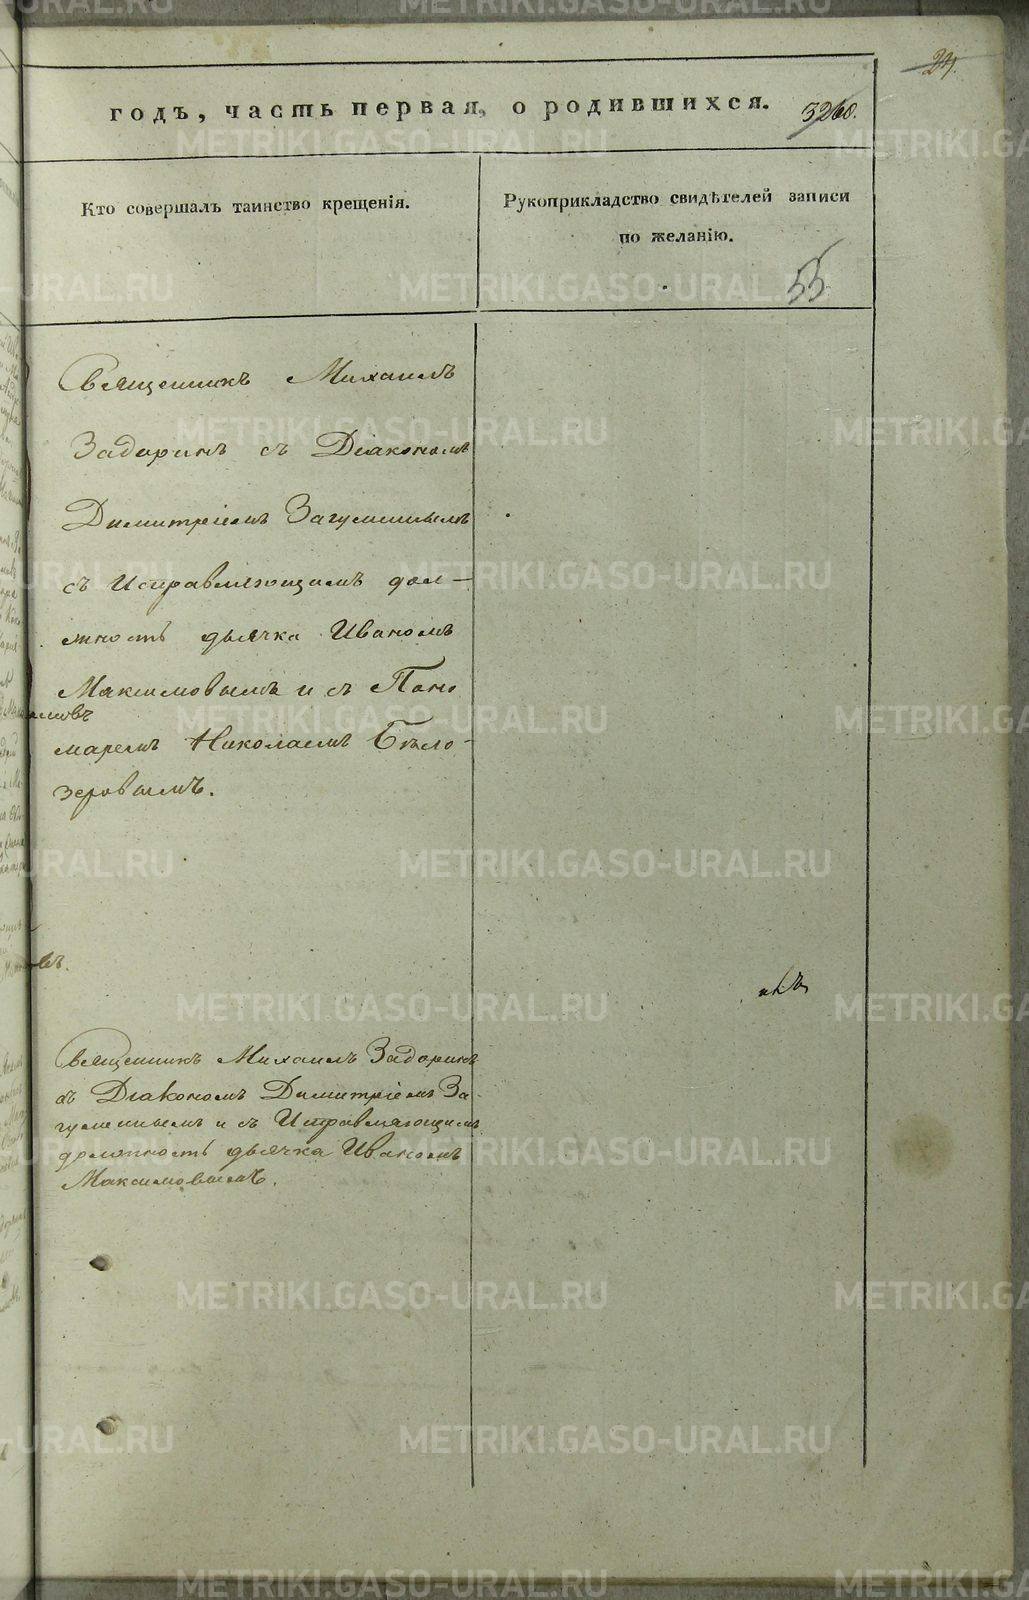 24.
годъ, часть первая, о родившихся. 3268.
Кто совершалъ таинство крещенія.
Рукоприкладство свидѣтелей записи
по желанію.
55
Священникъ Михаилъ
Задоринъ съ Діакономъ
Димитріемъ Загуменнымъ
съ Исправляющимъ дол-
жность дьячка Иваномъ
Максимовымъ и съ Поно
маремъ Николаемъ Бѣло-
зеровымъ.
Священникъ Михаилъ Задоринъ
съ Діакономъ Димитріемъ За-
гуменнымъ и съ Исправляющимъ
должность дьячка Иваномъ
Максимовымъ.
METRIKI.GASO-URAL.RU